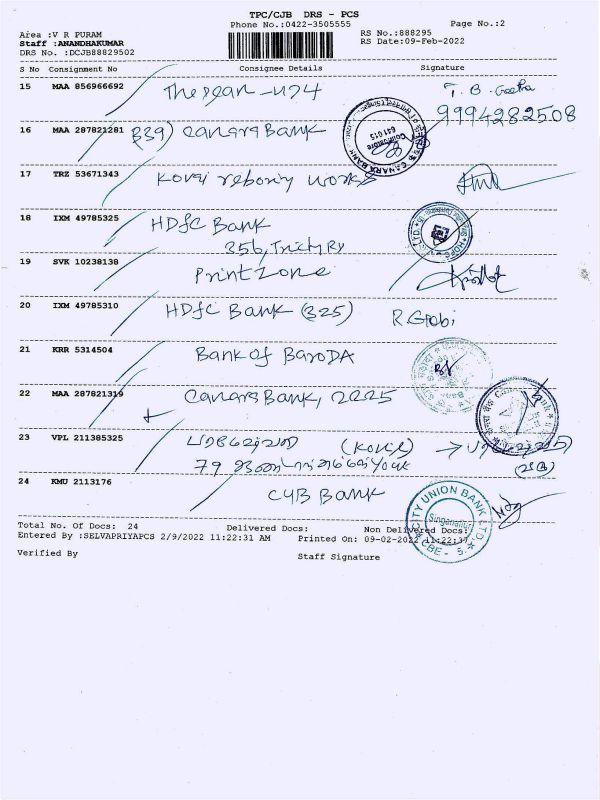 TPC/CJB DRS - PCS
Phone No.:0422-3505555
Page No.:2
Area :V R PURAM
Staff :ANANDHAKUMAR
DRS No. :DCJB88829502
RS No.:888295
RS Date:09-Feb-2022
S No Consignment No Consignee Details Signature
15 MAA 856966692 T. B. Geetha
9994282508
16 MAA 287821281 Canara Bank
CANARA BANK
Coimbatore
641 015
17 TRZ 53671343 Kovai reboring works
18 IXM 49785325 HDFC Bank
356, Trichy Rd
19 SVK 10238138 Print Zone
20 IXM 49785310 HDFC Bank (325) R. Gobi
21 KRR 5314504 Bank of BaroDA
22 MAA 287821319 Canara Bank, 2225
23 VPL 211385325
79
24 KMU 2113176 CUB Bank
CITY UNION BANK LTD.
Singanallur
CBE - 5.
Total No. Of Docs: 24 Delivered Docs: Non Delivered Docs:
Entered By :SELVAPRIYAPCS 2/9/2022 11:22:31 AM Printed On: 09-02-2022 11:22:37
Verified By Staff Signature